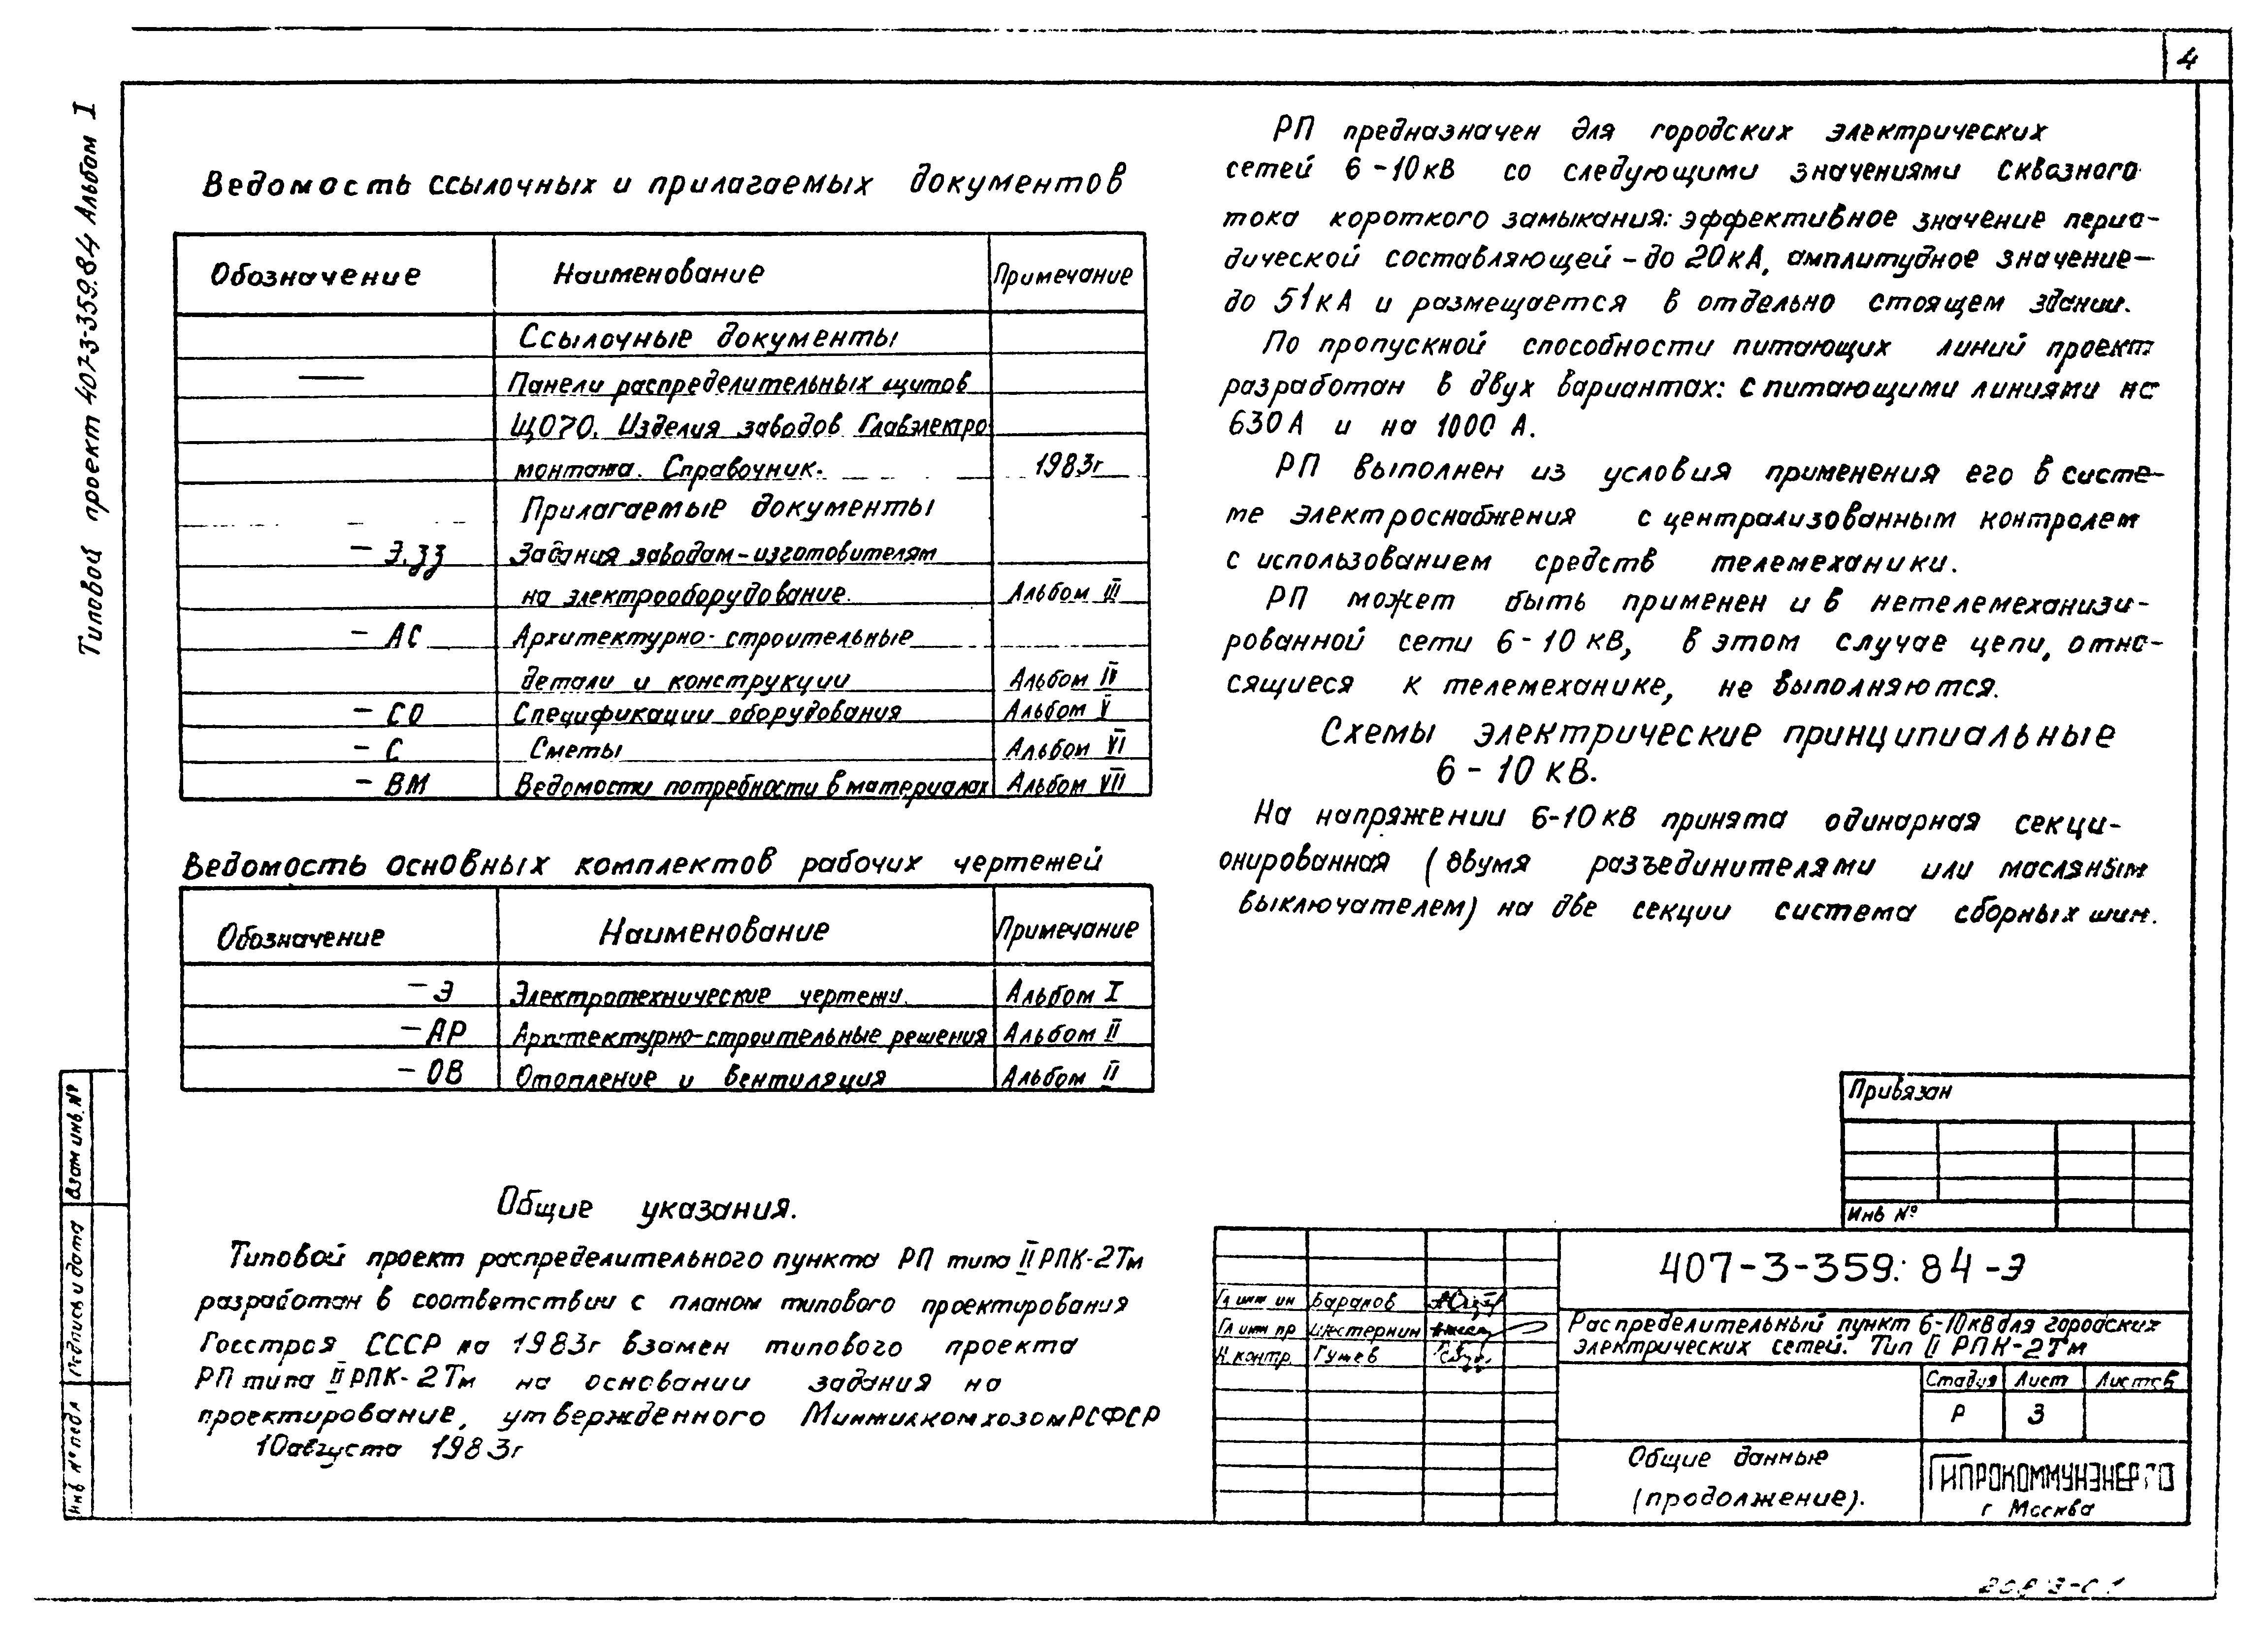 4
Типовой проект 407-3-359.84 Альбом I
Ведомость ссылочных и прилагаемых документов
Обозначение Наименование Примечание
Ссылочные документы
— Панели распределительных щитов
ЩО70. Изделия заводов Главэлектро
монтажа. Справочник. 1983г
Прилагаемые документы
— Э.ЗЗ Задания заводам-изготовителям
на электрооборудование. Альбом III
— АС Архитектурно-строительные
детали и конструкции Альбом IV
— СО Спецификации оборудования Альбом V
— С Сметы Альбом VI
— ВМ Ведомости потребности в материалах Альбом VII
Ведомость основных комплектов рабочих чертежей
Обозначение Наименование Примечание
— Э Электротехнические чертежи. Альбом I
— АР Архитектурно-строительные решения Альбом II
— ОВ Отопление и вентиляция Альбом II
Общие указания.
Типовой проект распределительного пункта РП типа II РПК-2Тм
разработан в соответствии с планом типового проектирования
Госстроя СССР на 1983г взамен типового проекта
РП типа II РПК-2Тм на основании задания на
проектирование, утвержденного Минжилкомхозом РСФСР
10 августа 1983г
РП предназначен для городских электрических
сетей 6-10кВ со следующими значениями сквозного
тока короткого замыкания: эффективное значение перио-
дической составляющей - до 20кА, амплитудное значение-
до 51кА и размещается в отдельно стоящем здании.
По пропускной способности питающих линий проект
разработан в двух вариантах: с питающими линиями на
630А и на 1000 А.
РП выполнен из условия применения его в систе-
ме электроснабжения с централизованным контролем
с использованием средств телемеханики.
РП может быть применен и в нетелемеханизи-
рованной сети 6-10 кВ, в этом случае цепи, отно-
сящиеся к телемеханике, не выполняются.
Схемы электрические принципиальные
6-10 кВ.
На напряжении 6-10 кВ принята одинарная секци-
онированная (двумя разъединителями или масляным
выключателем) на две секции система сборных шин.
Привязан
Инв №
407-3-359.84-Э
Гл инж ин Баранов
Гл инж пр Шестернин
Н.контр. Гужев
Распределительный пункт 6-10кВ для городских
электрических сетей. Тип II РПК-2Тм
Стадия Лист Листов
Р 3
Общие данные
(продолжение).
ГИПРОКОММУНЭНЕРГО
г Москва
Взам инв. №
Подпись и дата
Инв № подл